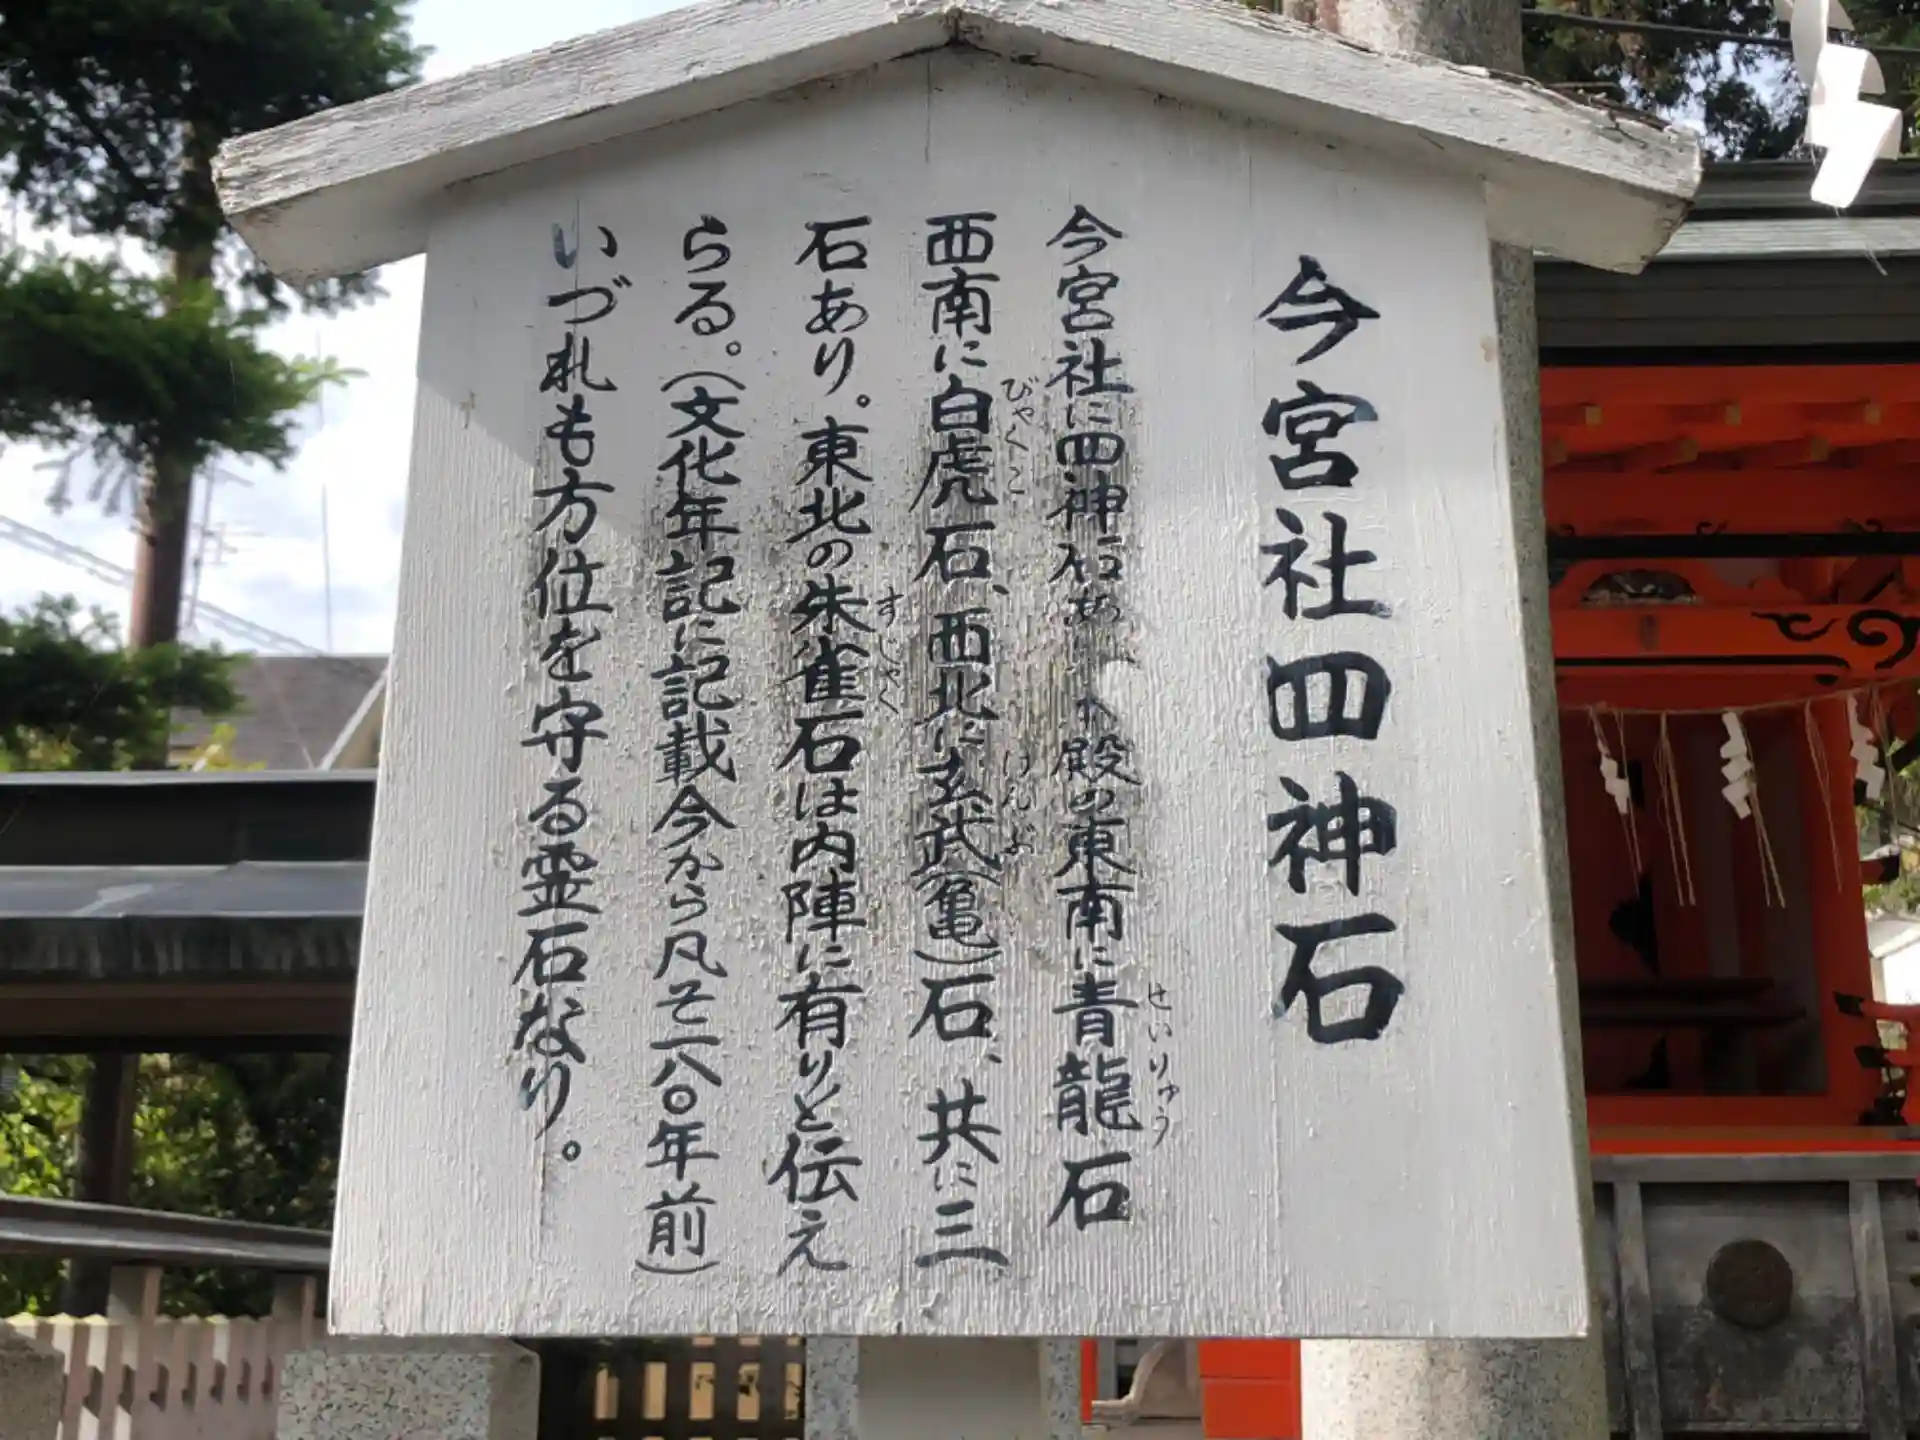 今宮社四神石
今宮社に四神石あ 殿の東南に青龍石
せいりゅう
西南に白虎石、西北に玄武(亀)石、共に三
びゃくこ
げんぶ
石あり。東北の朱雀石は内陣に有りと伝え
すじゃく
らる。(文化年記に記載今から凡そ二八〇年前)
いづれも方位を守る霊石なり。